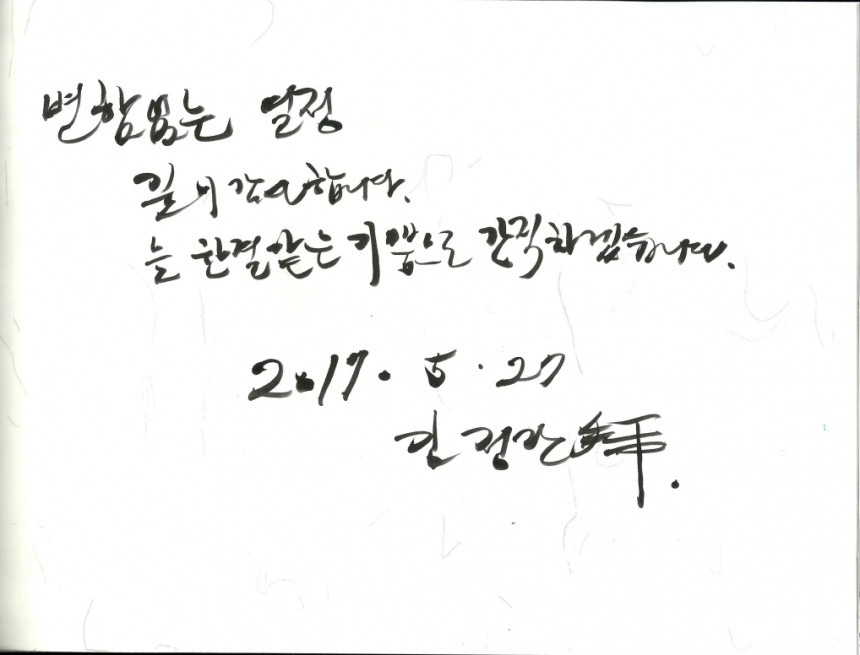 변함없는 열정
깊이 감사합니다.
늘 한결같은 기쁨으로 간직하겠습니다.
2017. 5. 27